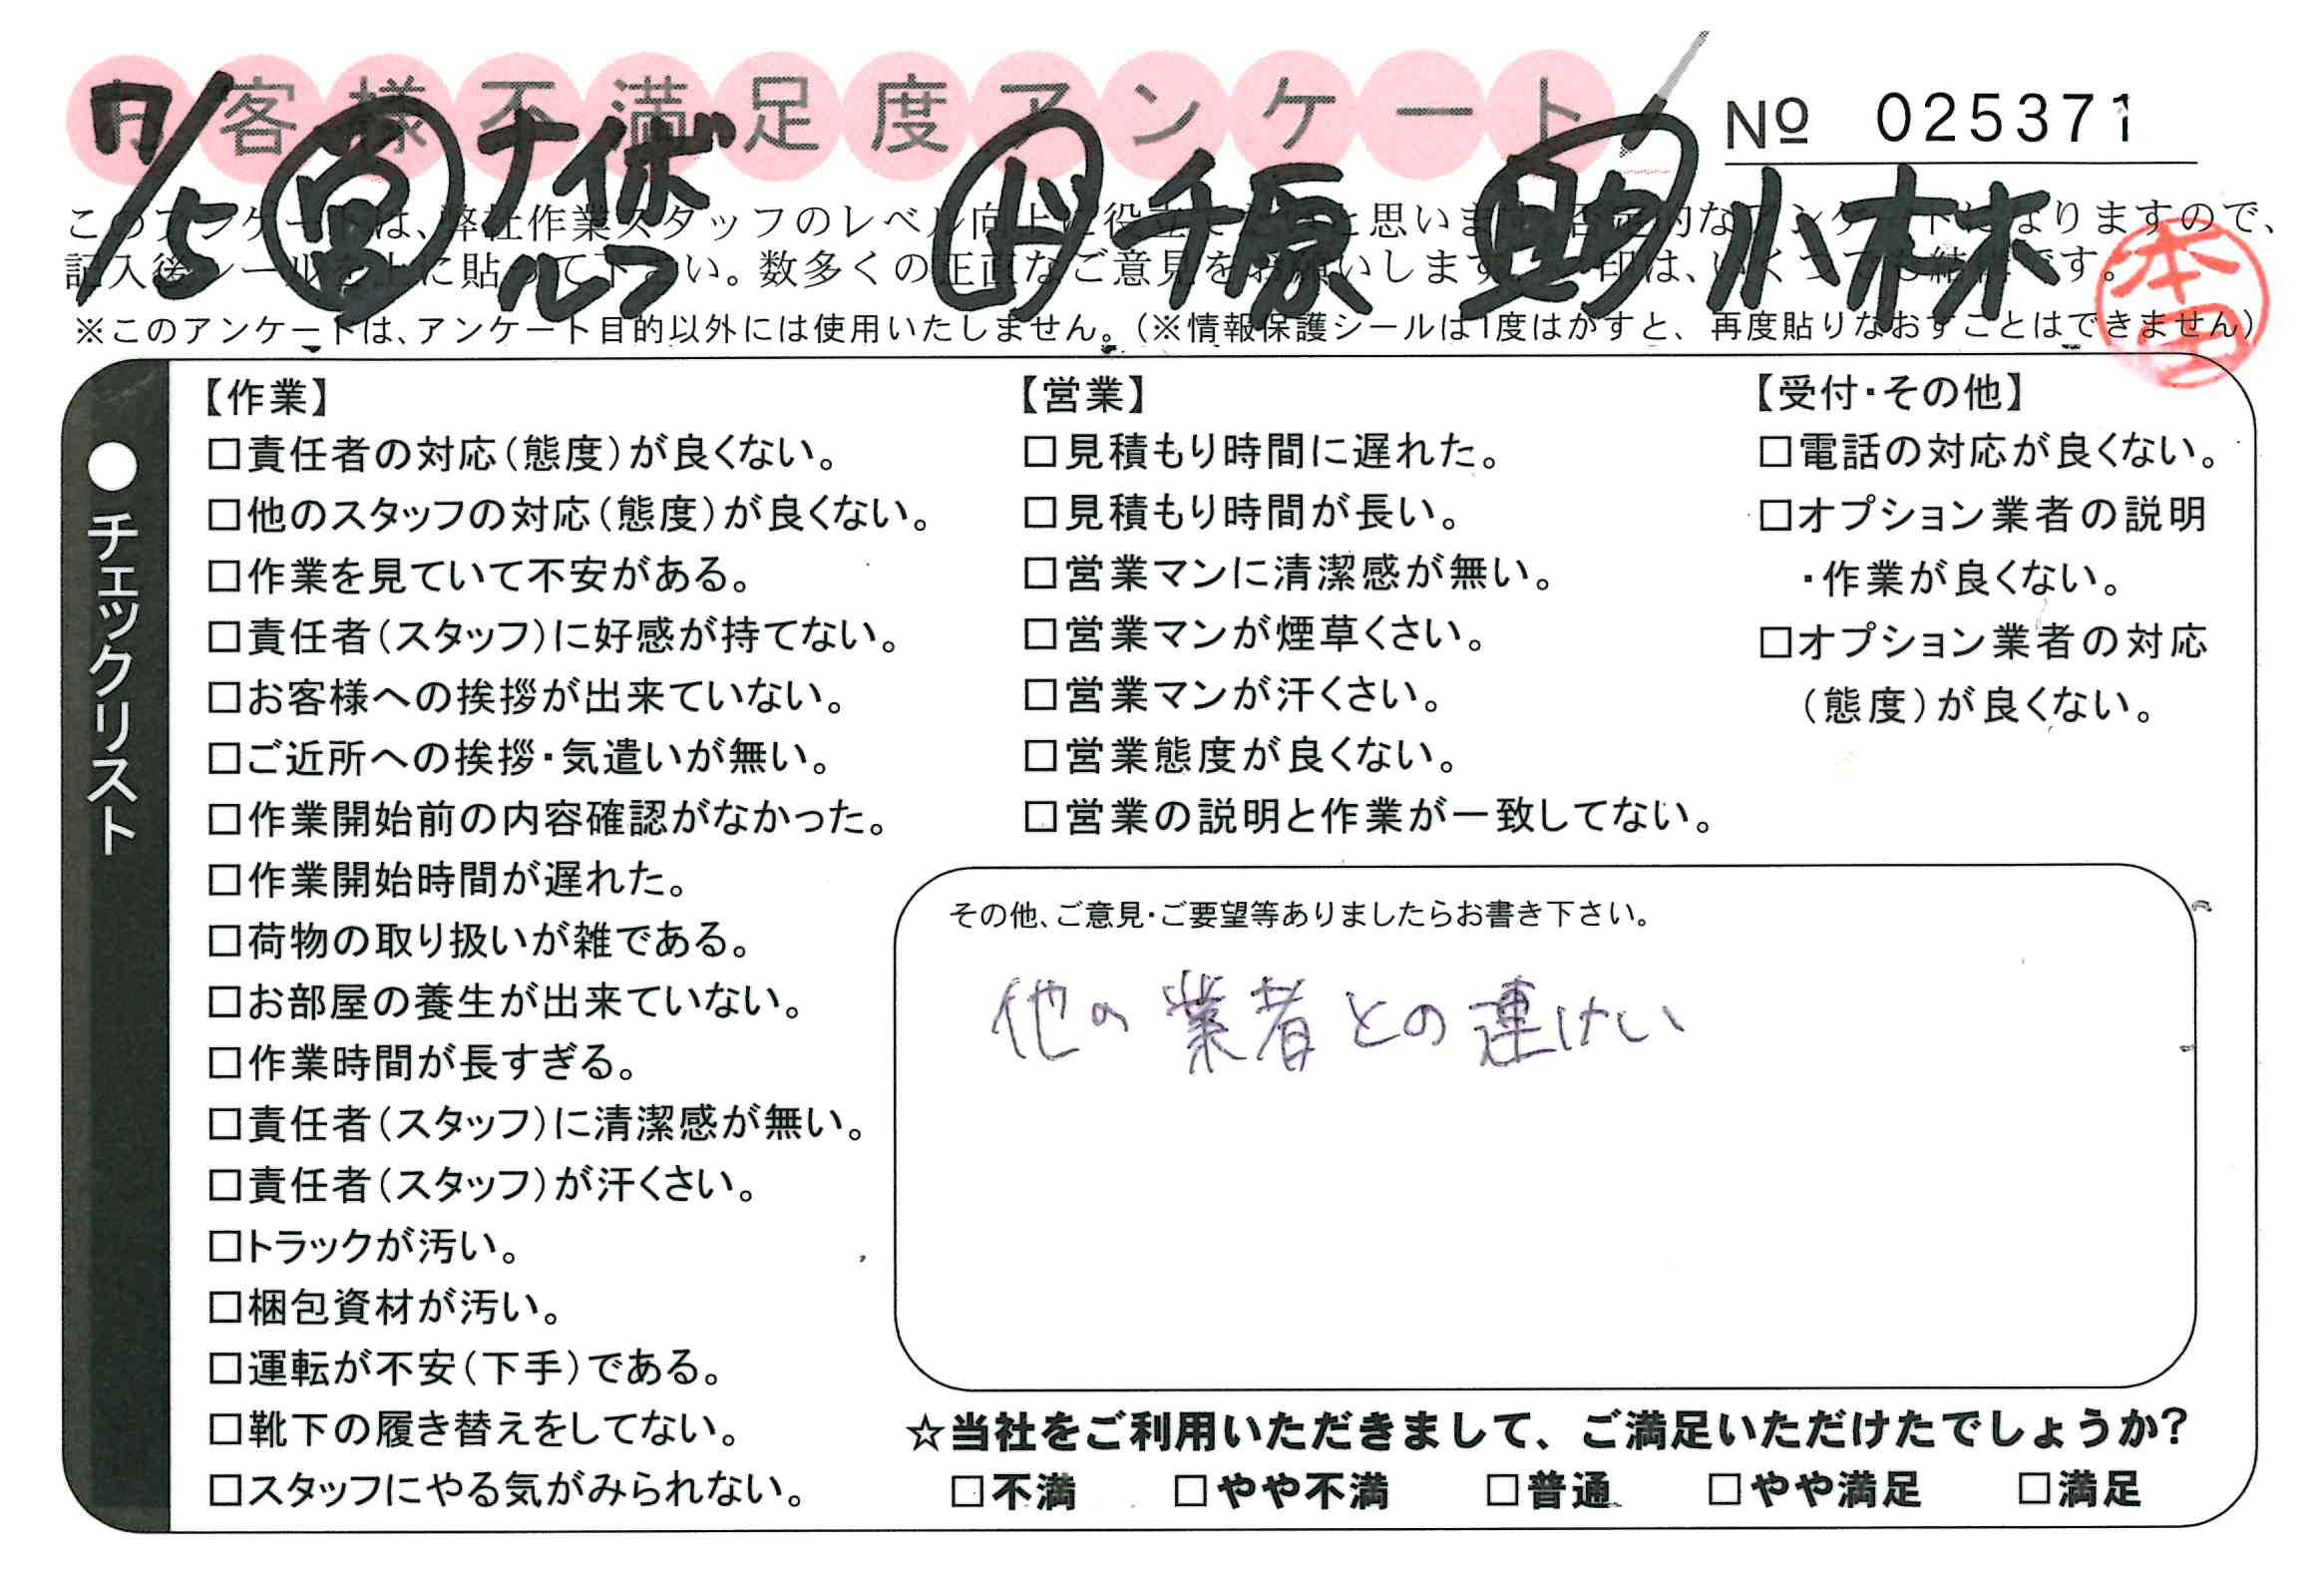 お客様不満足度アンケート
№ 025371
7/5 営 ド 千原 助 小林
このアンケートは、弊社作業スタッフのレベル向上に役立てたいと思います。否定的なアンケートになりますので、
記入後シールを上に貼って下さい。数多くの正直なご意見をお願いします。 印は、いくつでも結構です。
※このアンケートは、アンケート目的以外には使用いたしません。(※情報保護シールは1度はがすと、再度貼りなおすことはできません)
本田
●チェックリスト
【作業】
□責任者の対応(態度)が良くない。
□他のスタッフの対応(態度)が良くない。
□作業を見ていて不安がある。
□責任者(スタッフ)に好感が持てない。
□お客様への挨拶が出来ていない。
□ご近所への挨拶・気遣いが無い。
□作業開始前の内容確認がなかった。
□作業開始時間が遅れた。
□荷物の取り扱いが雑である。
□お部屋の養生が出来ていない。
□作業時間が長すぎる。
□責任者(スタッフ)に清潔感が無い。
□責任者(スタッフ)が汗くさい。
□トラックが汚い。
□梱包資材が汚い。
□運転が不安(下手)である。
□靴下の履き替えをしてない。
□スタッフにやる気がみられない。
【営業】
□見積もり時間に遅れた。
□見積もり時間が長い。
□営業マンに清潔感が無い。
□営業マンが煙草くさい。
□営業マンが汗くさい。
□営業態度が良くない。
□営業の説明と作業が一致してない。
【受付・その他】
□電話の対応が良くない。
□オプション業者の説明
・作業が良くない。
□オプション業者の対応
(態度)が良くない。
その他、ご意見・ご要望等ありましたらお書き下さい。
他の業者との連けい
☆当社をご利用いただきまして、ご満足いただけたでしょうか?
□不満 □やや不満 □普通 □やや満足 □満足